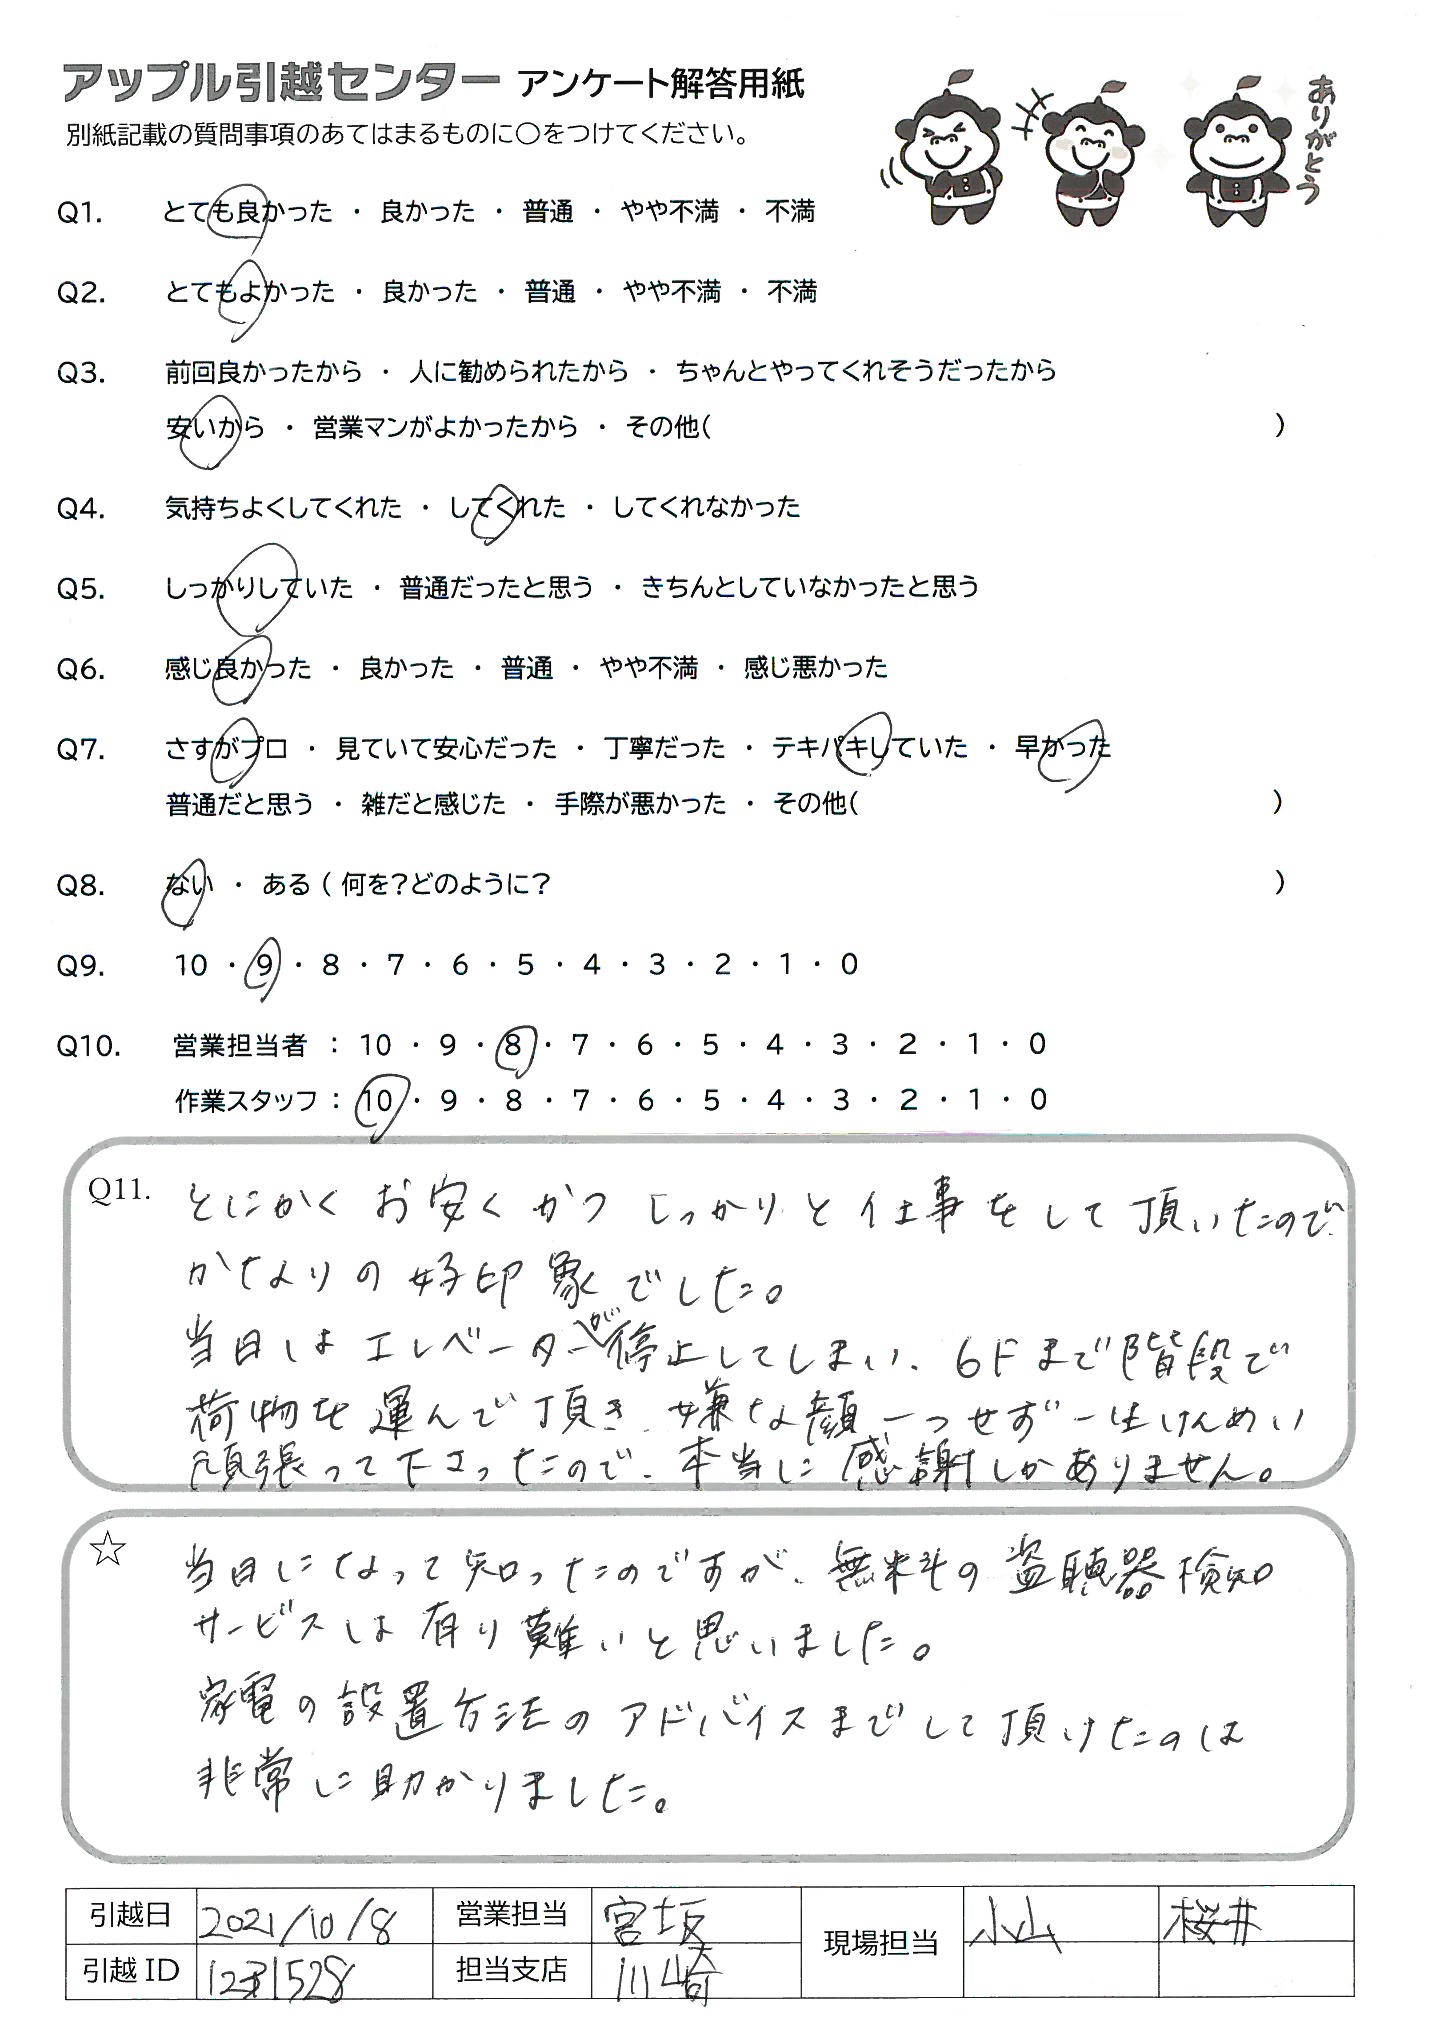 アップル引越センター アンケート解答用紙
別紙記載の質問事項のあてはまるものに〇をつけてください。
ありがとう
Q1. とても良かった ・ 良かった ・ 普通 ・ やや不満 ・ 不満
Q2. とてもよかった ・ 良かった ・ 普通 ・ やや不満 ・ 不満
Q3. 前回良かったから ・ 人に勧められたから ・ ちゃんとやってくれそうだったから
安いから ・ 営業マンがよかったから ・ その他( )
Q4. 気持ちよくしてくれた ・ してくれた ・ してくれなかった
Q5. しっかりしていた ・ 普通だったと思う ・ きちんとしていなかったと思う
Q6. 感じ良かった ・ 良かった ・ 普通 ・ やや不満 ・ 感じ悪かった
Q7. さすがプロ ・ 見ていて安心だった ・ 丁寧だった ・ テキパキしていた ・ 早かった
普通だと思う ・ 雑だと感じた ・ 手際が悪かった ・ その他( )
Q8. ない ・ ある ( 何を?どのように? )
Q9. 10 ・ 9 ・ 8 ・ 7 ・ 6 ・ 5 ・ 4 ・ 3 ・ 2 ・ 1 ・ 0
Q10. 営業担当者 : 10 ・ 9 ・ 8 ・ 7 ・ 6 ・ 5 ・ 4 ・ 3 ・ 2 ・ 1 ・ 0
作業スタッフ : 10 ・ 9 ・ 8 ・ 7 ・ 6 ・ 5 ・ 4 ・ 3 ・ 2 ・ 1 ・ 0
Q11. とにかくお安くかつしっかりと仕事をして頂いたので、
かなりの好印象でした。
当日はエレベーターが停止してしまい、6Fまで階段で
荷物を運んで頂き、嫌な顔一つせず一生けんめい
頑張って下さったので、本当に感謝しかありません。
☆ 当日になって知ったのですが、無料の盗聴器検知
サービスは有り難いと思いました。
家電の設置方法のアドバイスまでして頂けたのは
非常に助かりました。
引越日 2021/10/8 営業担当 宮坂 現場担当 小山 桜井
引越ID 1231528 担当支店 川崎